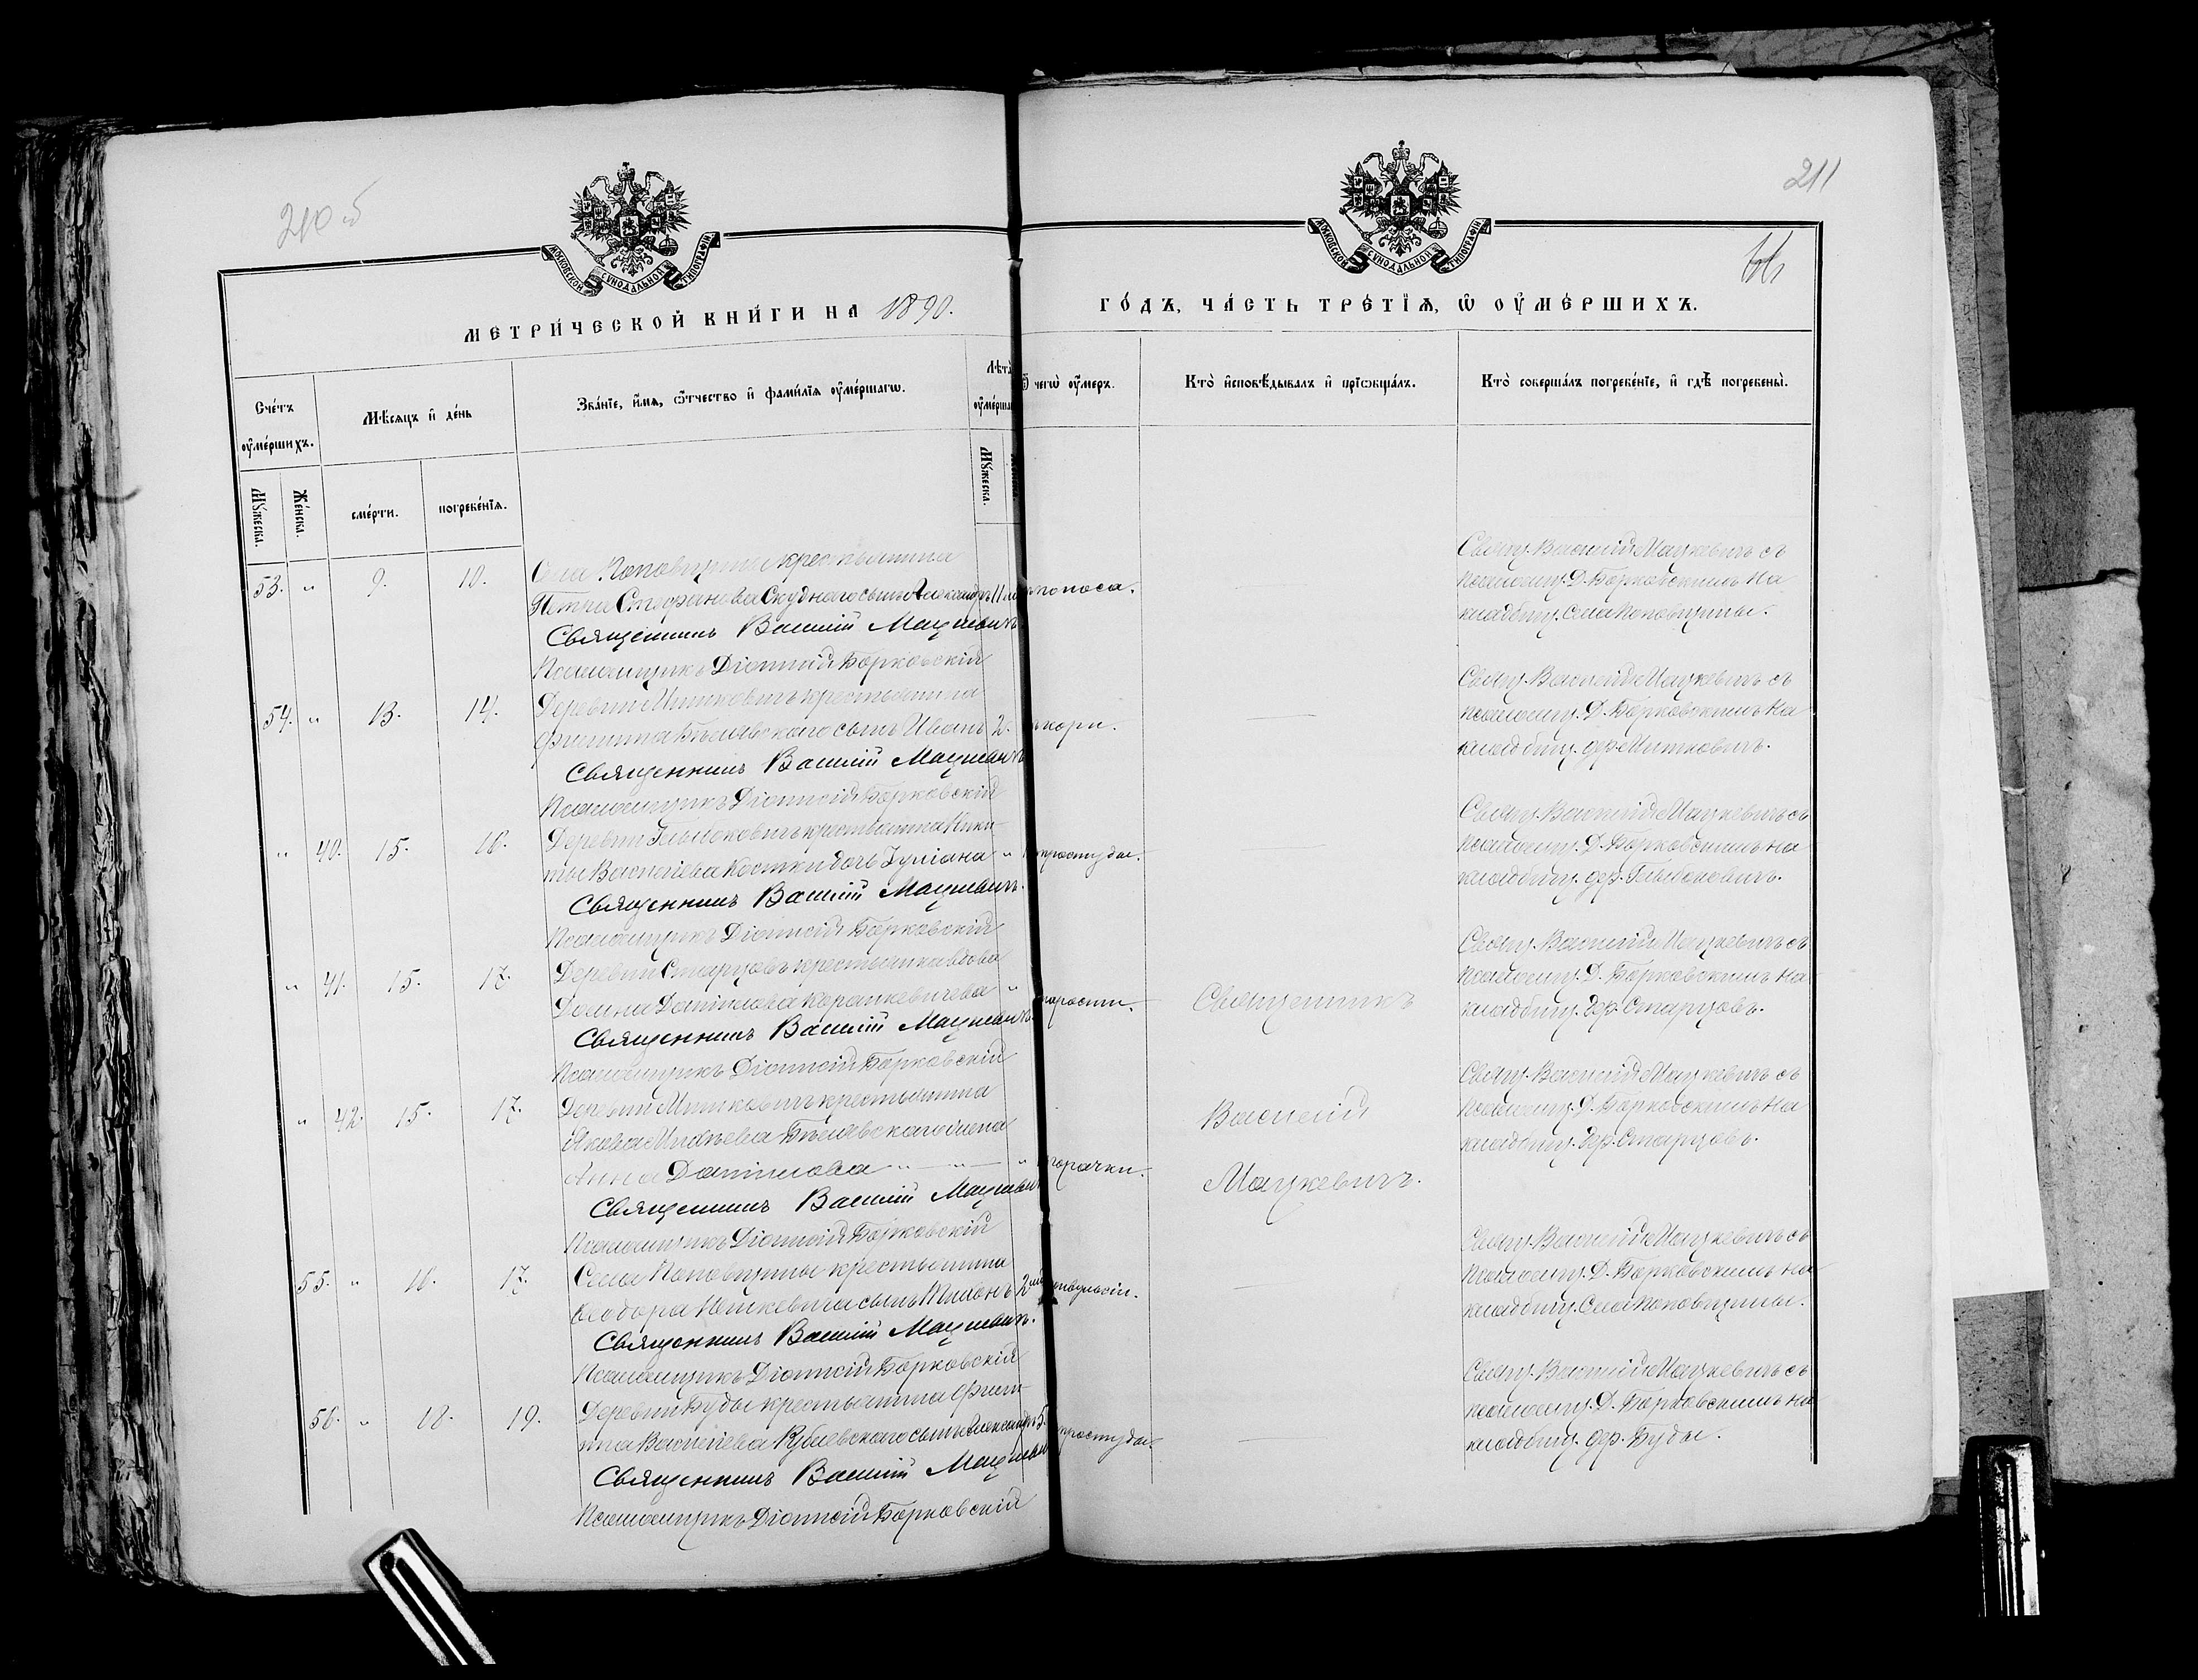 210 об
211
МОСКОВСКОЙ СѴНОДАЛЬНОЙ ТИПОГРАФІИ
МОСКОВСКОЙ СѴНОДАЛЬНОЙ ТИПОГРАФІИ
МЕТРИ́ЧЕСКОЙ КНИ́ГИ НА 1890.
ГО́ДЪ, ЧА́СТЬ ТРЕ́ТІѦ, Ѿ ОУ҆МЕ́РШИХЪ.
Сче́тъ оу҆ме́ршихъ.
Мѣ́сяцъ и҆ де́нь
Зва́нїе, и҆́мѧ, ѻ҆́тчество и҆ фами́лїѧ оу҆ме́ршагѡ.
Лѣ́та оу҆ме́рша
Ѿ чегѡ̀ оу҆́меръ.
Кто̀ и҆сповѣ́дывалъ и҆ прїѡбща́лъ.
Кто̀ соверша́лъ погребе́нїе, и҆ гдѣ̀ погребены̀.
Мꙋ́жеска.
Же́нска.
сме́рти.
погребе́нїѧ.
Мꙋ́жеска.
53. " 9. 10.
Села Поповщины крестьянина
Петра Стефанова Скуднаго сынъ Александръ 11 поноса.
Священникъ Василій Мацкевичъ
Псаломщикъ Діонисій Борковскій
Свящ. Василій Мацкевичъ съ
псаломщ. Д. Борковскимъ на
кладбищ. села Поповщины.
54. " 13. 14.
Деревни Митковичъ крестьянина
Филиппа Бѣлявскаго сынъ Иванъ 2. кори.
Священникъ Василій Мацкевичъ
Псаломщикъ Діонисій Борковскій
Свящ. Василій Мацкевичъ съ
псаломщ. Д. Борковскимъ на
кладбищ. дер. Митковичъ.
" 40. 15. 16.
Деревни Глыбоковичъ крестьянина Ники-
ты Васильева Костки дочь Іуліана " простуды.
Священникъ Василій Мацкевичъ.
Псаломщикъ Діонисій Борковскій
Свящ. Василій Мацкевичъ съ
псаломщ. Д. Борковскимъ на
кладбищ. дер. Глыбоковичъ.
" 41. 15. 17.
Деревни Старцовъ крестьянка вдова
Даніилова " старости.
Священникъ Василій Мацкевичъ.
Псаломщикъ Діонисій Борковскій
Священникъ
Свящ. Василій Мацкевичъ съ
псаломщ. Д. Борковскимъ на
кладбищ. дер. Старцовъ.
" 42. 15. 17.
Деревни Митковичъ крестьянина
Якова Бѣлявскаго жена
Анна Даніилова " — " — " горячки.
Священникъ Василій Мацкевичъ
Псаломщикъ Діонисій Борковскій
Василій
Мацкевичъ.
Свящ. Василій Мацкевичъ съ
псаломщ. Д. Борковскимъ на
кладбищ. дер. Старцовъ.
55. " 16. 17.
Села Поповщины крестьянина
Ѳеодора сынъ 2
Священникъ Василій Мацкевичъ.
Псаломщикъ Діонисій Борковскій
Свящ. Василій Мацкевичъ съ
псаломщ. Д. Борковскимъ на
кладбищ. села Поповщины.
56. " 18. 19.
Деревни Буды крестьянина Филип-
па Васильева сынъ Александръ 5. простуды.
Священникъ Василій Мацкевичъ
Псаломщикъ Діонисій Борковскій
Свящ. Василій Мацкевичъ съ
псаломщ. Д. Борковскимъ на
кладбищ. дер. Буды.